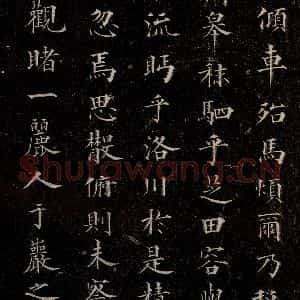 傾車殆馬煩爾乃稅
皋秣駟乎芝田容與
流眄乎洛川於是精
忽焉思散俯則未察
觀睹一麗人于巖之
Shufawang.CN